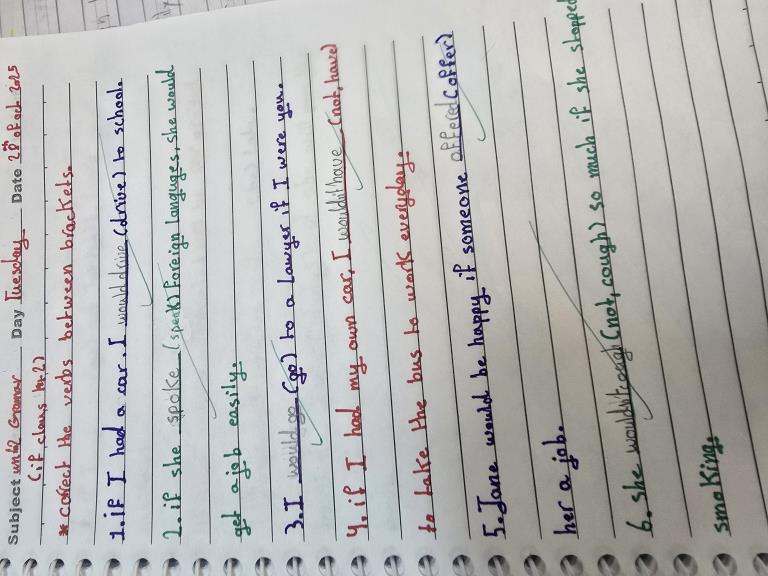 Subject unit2 Grammar Day Tuesday Date 28 of oct 2025
(if claus no.2)
* correct the verbs between brackets.
1. if I had a car. I would drive (drive) to school.
2. if she spoke (speak) foreign languges, she would
get a job easily.
3. I would go (go) to a lawyer if I were you.
4. if I had my own car, I wouldn't have (not, have)
to take the bus to work everyday.
5. Jane would be happy if someone offered (offer)
her a job.
6. she wouldn't cough (not, cough) so much if she stopped
smoking.